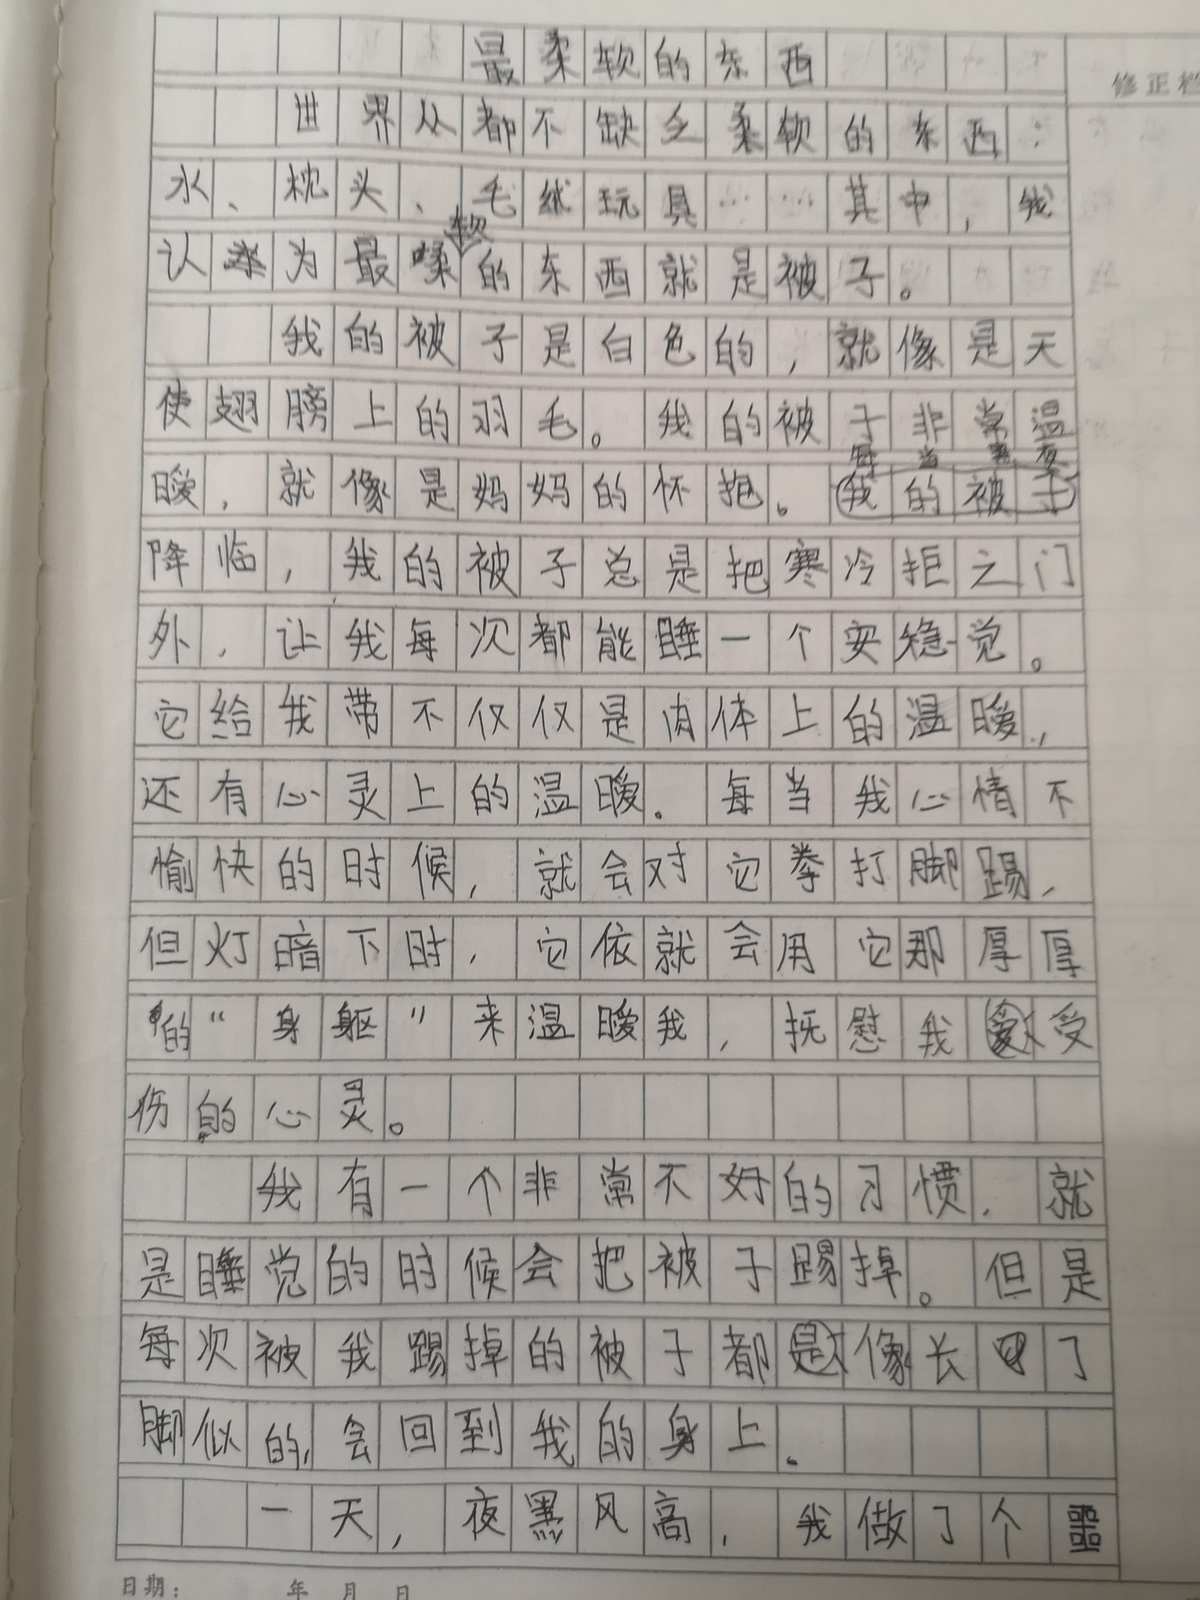 最柔软的东西
修正栏
世界从都不缺乏柔软的东西：
水、枕头、毛绒玩具……其中，我
认为最柔软的东西就是被子。
我的被子是白色的，就像是天
使翅膀上的羽毛。我的被子非常温
暖，就像是妈妈的怀抱。每当黑夜
降临，我的被子总是把寒冷拒之门
外，让我每次都能睡一个安稳觉。
它给我带不仅仅是肉体上的温暖，
还有心灵上的温暖。每当我心情不
愉快的时候，就会对它拳打脚踢，
但灯暗下时，它依就会用它那厚厚
的“身躯”来温暖我，抚慰我受
伤的心灵。
我有一个非常不好的习惯，就
是睡觉的时候会把被子踢掉。但是
每次被我踢掉的被子都像长了
脚似的，会回到我的身上。
一天，夜黑风高，我做了个噩
日期：　年　月　日